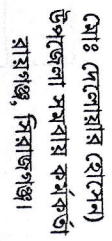 (মোঃ দেলোয়ার হোসেন)
উপজেলা সমবায় কর্মকর্তা
রায়গঞ্জ, সিরাজগঞ্জ।